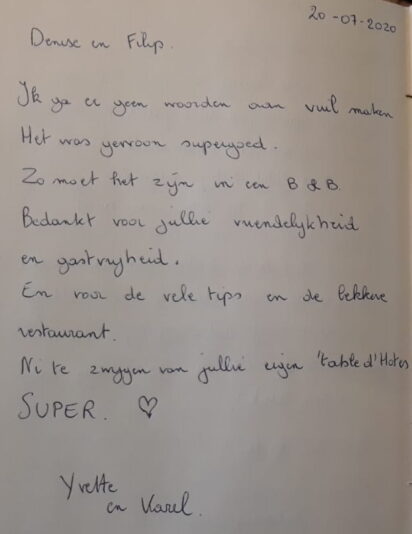 20-07-2020
Denise en Filip.
Ik ga er geen woorden aan vuil maken
Het was gewoon supergoed.
Zo moet het zijn in een B & B.
Bedankt voor jullie vriendelijkheid
en gastvrijheid.
En voor de vele tips en de lekkere
restaurant.
Ni te zwijgen van jullie eigen 'table d'Hotes
SUPER. ♡
Yvette
en Karel.